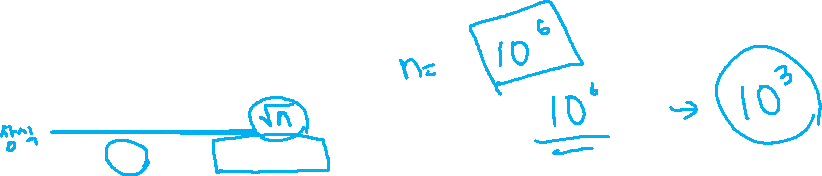 n= 10⁶
10⁶ → 10³
√n